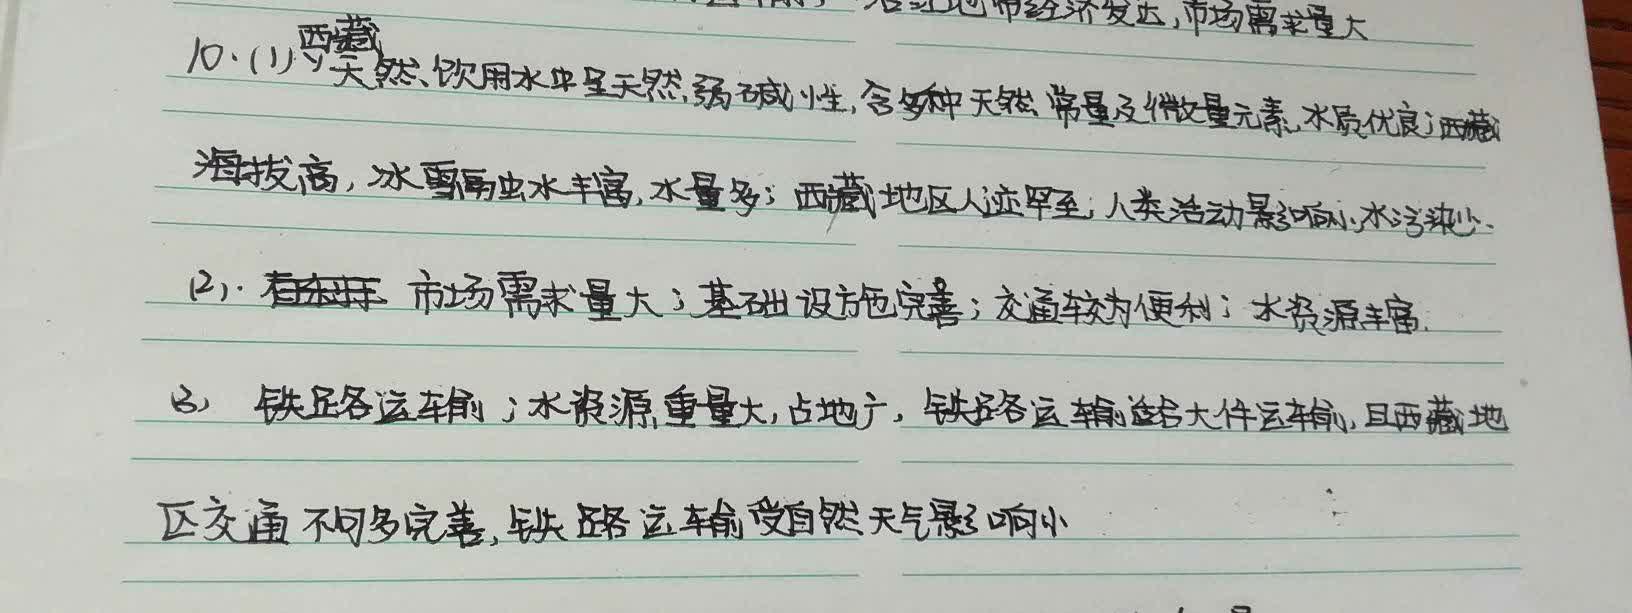 沿江地带经济发达,市场需求量大
10.(1)西藏天然饮用水中呈天然弱碱性,含多种天然常量及微量元素,水质优良;西藏
海拔高,冰雪融水丰富,水量多;西藏地区人迹罕至,人类活动影响小,水污染少.
(2).市场需求量大;基础设施完善;交通较为便利;水资源丰富.
(3)铁路运输;水资源重量大,占地广,铁路运输适合大件运输,且西藏地
区交通不够完善,铁路运输受自然天气影响小